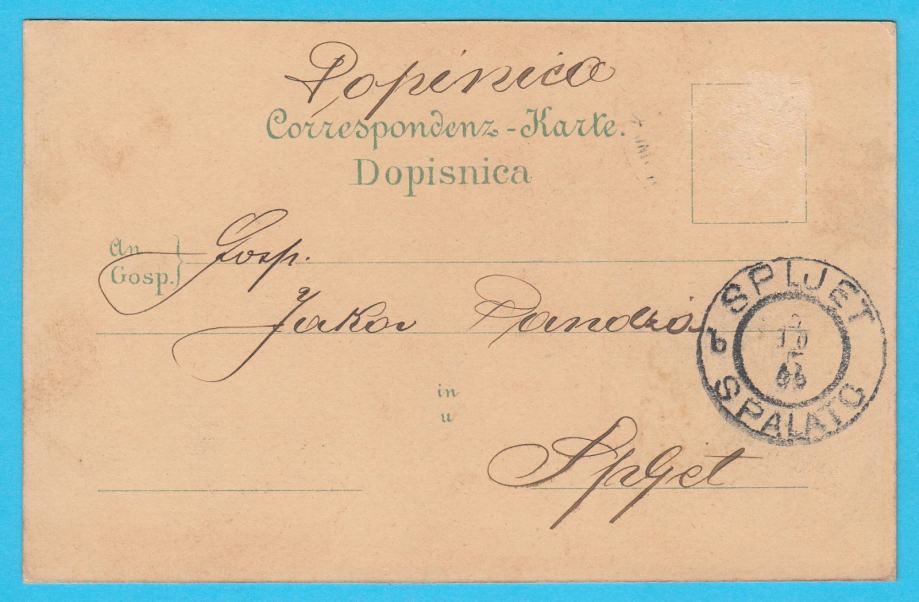 Dopisnica
Correspondenz-Karte.
Dopisnica
An
Gosp.
Gosp.
Jakov
in
u
Spljet
SPLJET
SPALATO